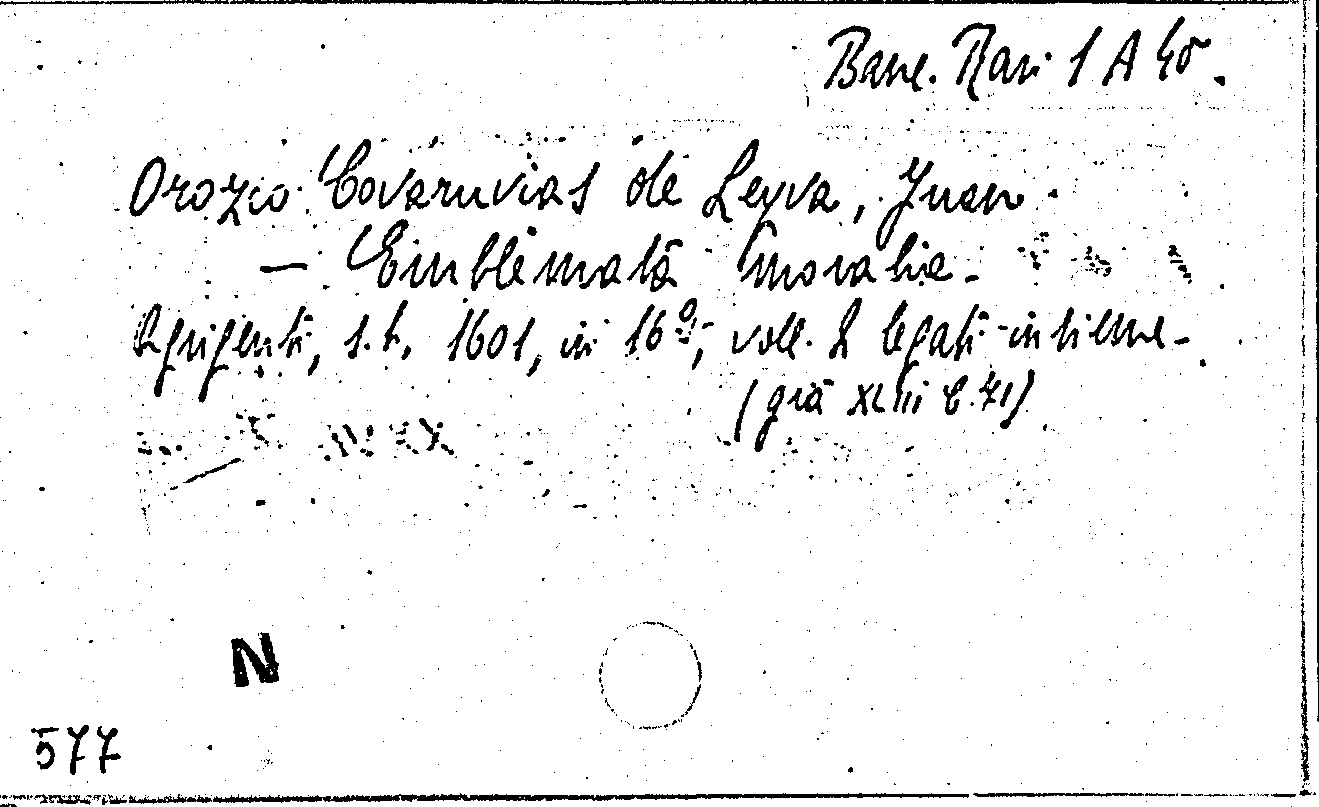 Banc. Rari 1 A 45.
Orozio Covaruvias de Leyva, Juan.
— Emblemata moralia.
Agrigenti, s.t., 1601, in 16º, voll. 2 legati insieme.
(già XLIII C. 71)
N
577